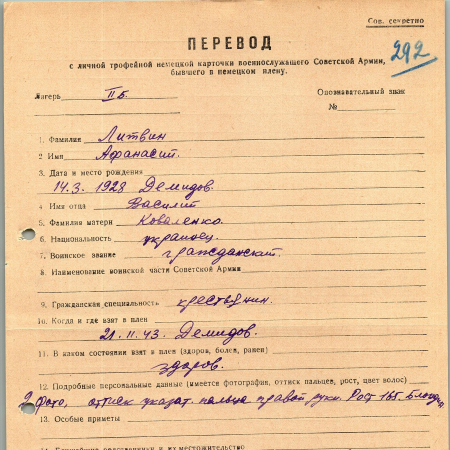 Сов. секретно
ПЕРЕВОД
292
с личной трофейной немецкой карточки военнослужащего Советской Армии,
бывшего в немецком плену.
Лагерь IIБ. Опознавательный знак
№
1. Фамилия Литвин
2 Имя Афанасий.
3. Дата и место рождения
14.3. 1923 Демидов.
4 Имя отца Василий
5. Фамилия матери Коваленко.
6. Национальность украинец.
7. Воинское звание гражданский.
8. Наименование воинской части Советской Армии
9. Гражданская специальность крестьянин.
10. Когда и где взят в плен
21.11.43 Демидов.
11. В каком состоянии взят в плен (здоров, болен, ранен)
здоров.
12. Подробные персональные данные (имеется фотография, оттиск пальцев, рост, цвет волос)
2 фото, оттиск указат. пальца правой руки. Рост 165. Блондин
13. Особые приметы